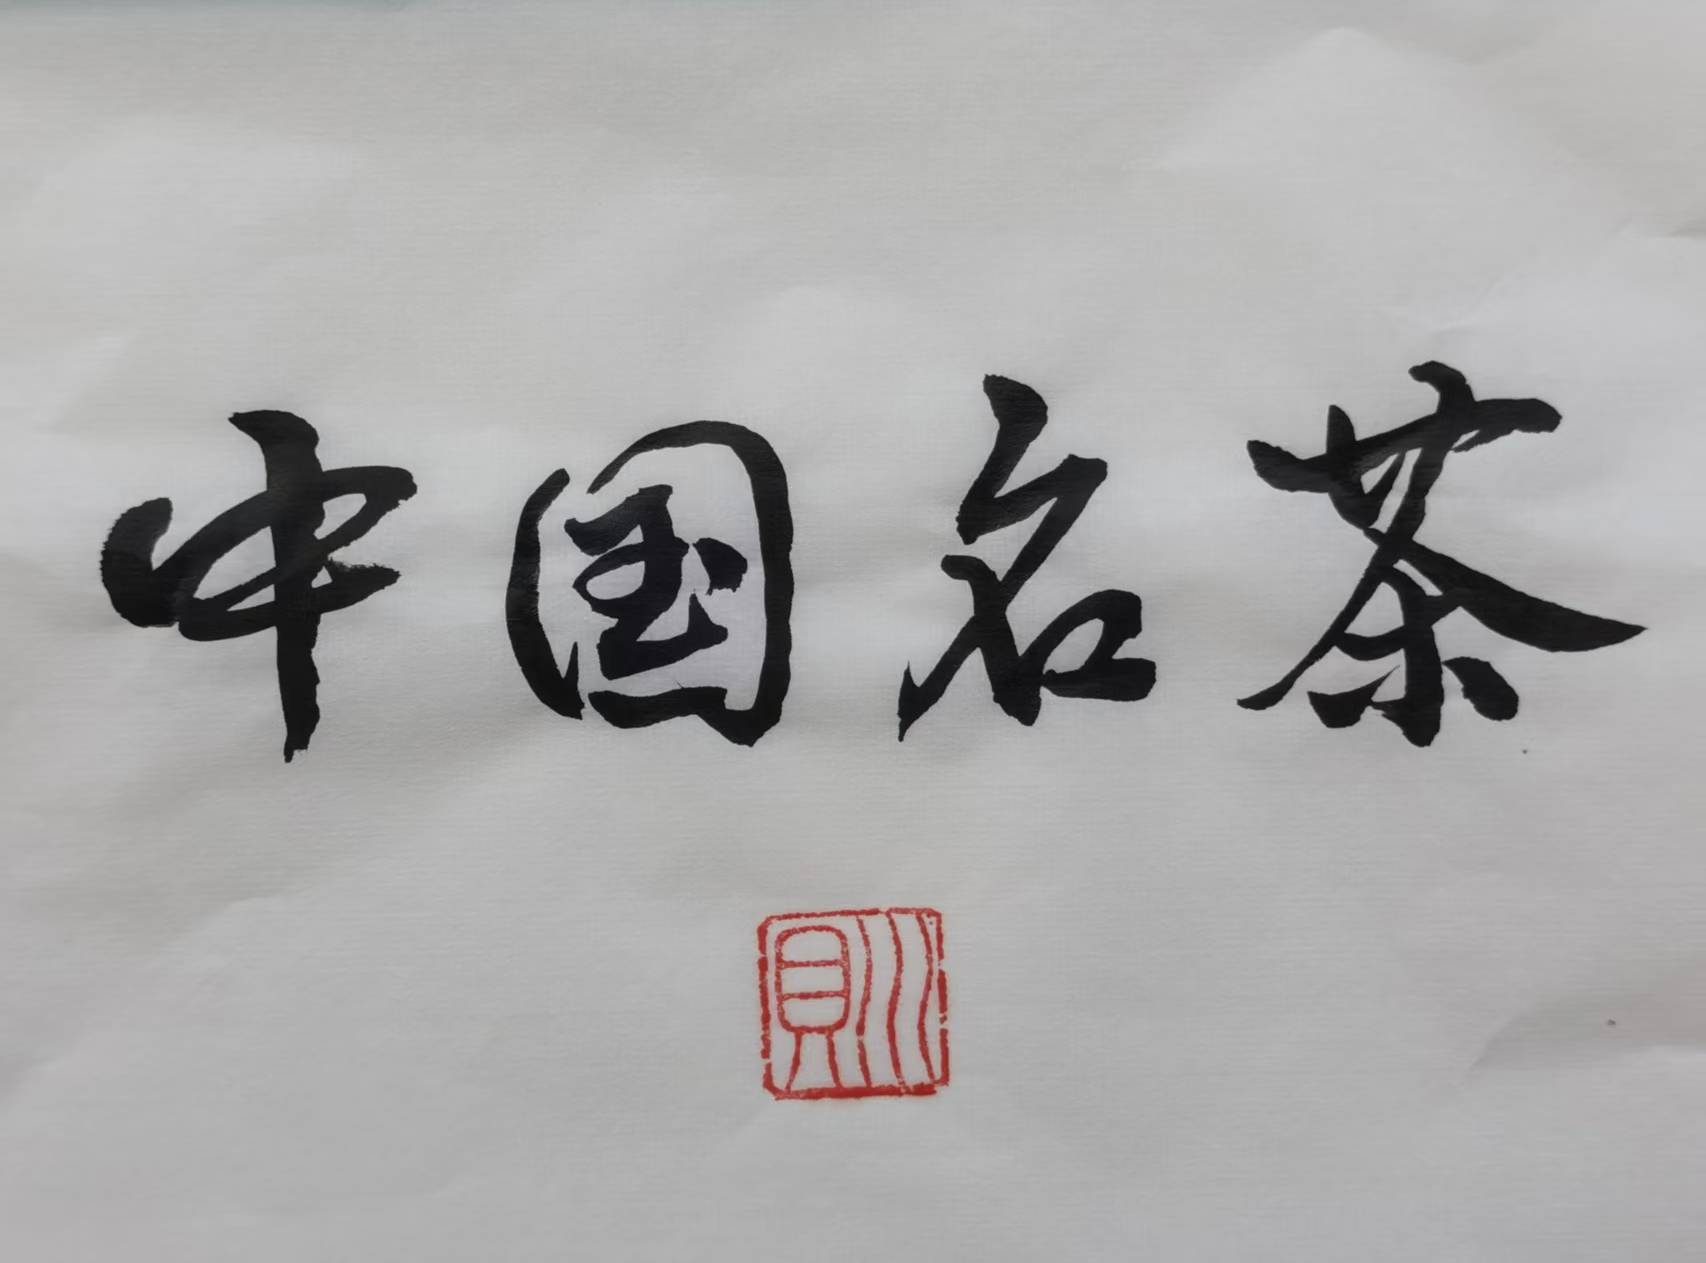 中国名茶